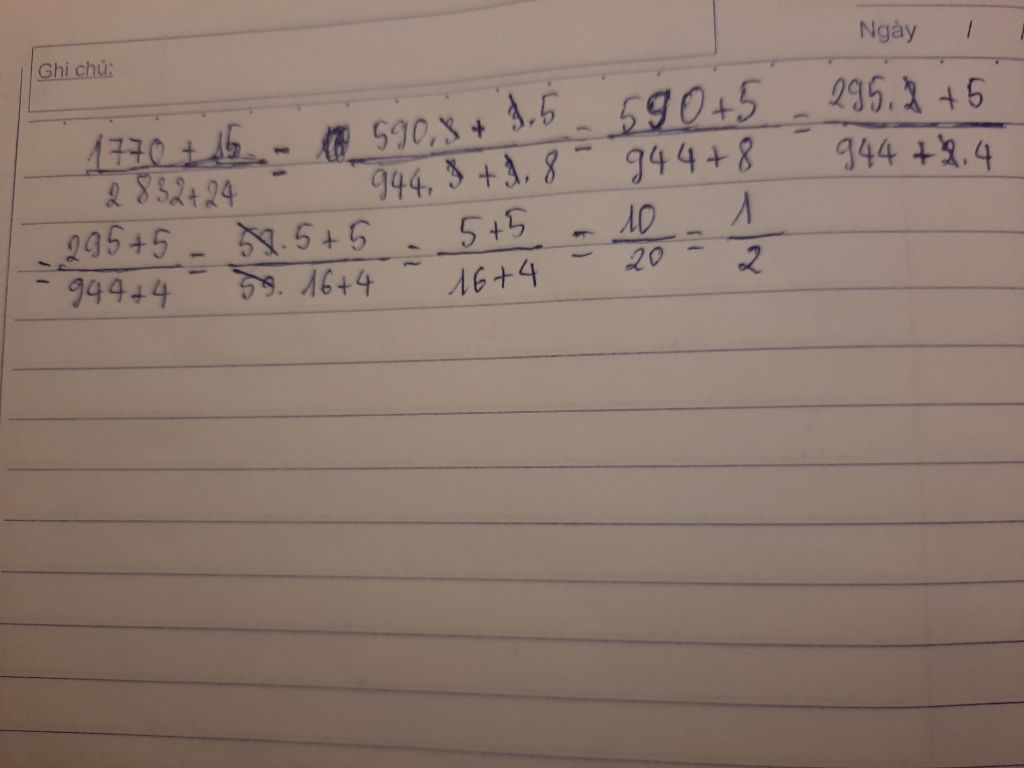 Ngày / /
Ghi chú:
1770 + 15 / 2832+24 = 590.3 + 3.5 / 944.3 + 3.8 = 590+5 / 944+8 = 295.2 + 5 / 944 + 2.4
= 295+5 / 944+4 = 59.5+5 / 59.16+4 = 5+5 / 16+4 = 10 / 20 = 1 / 2